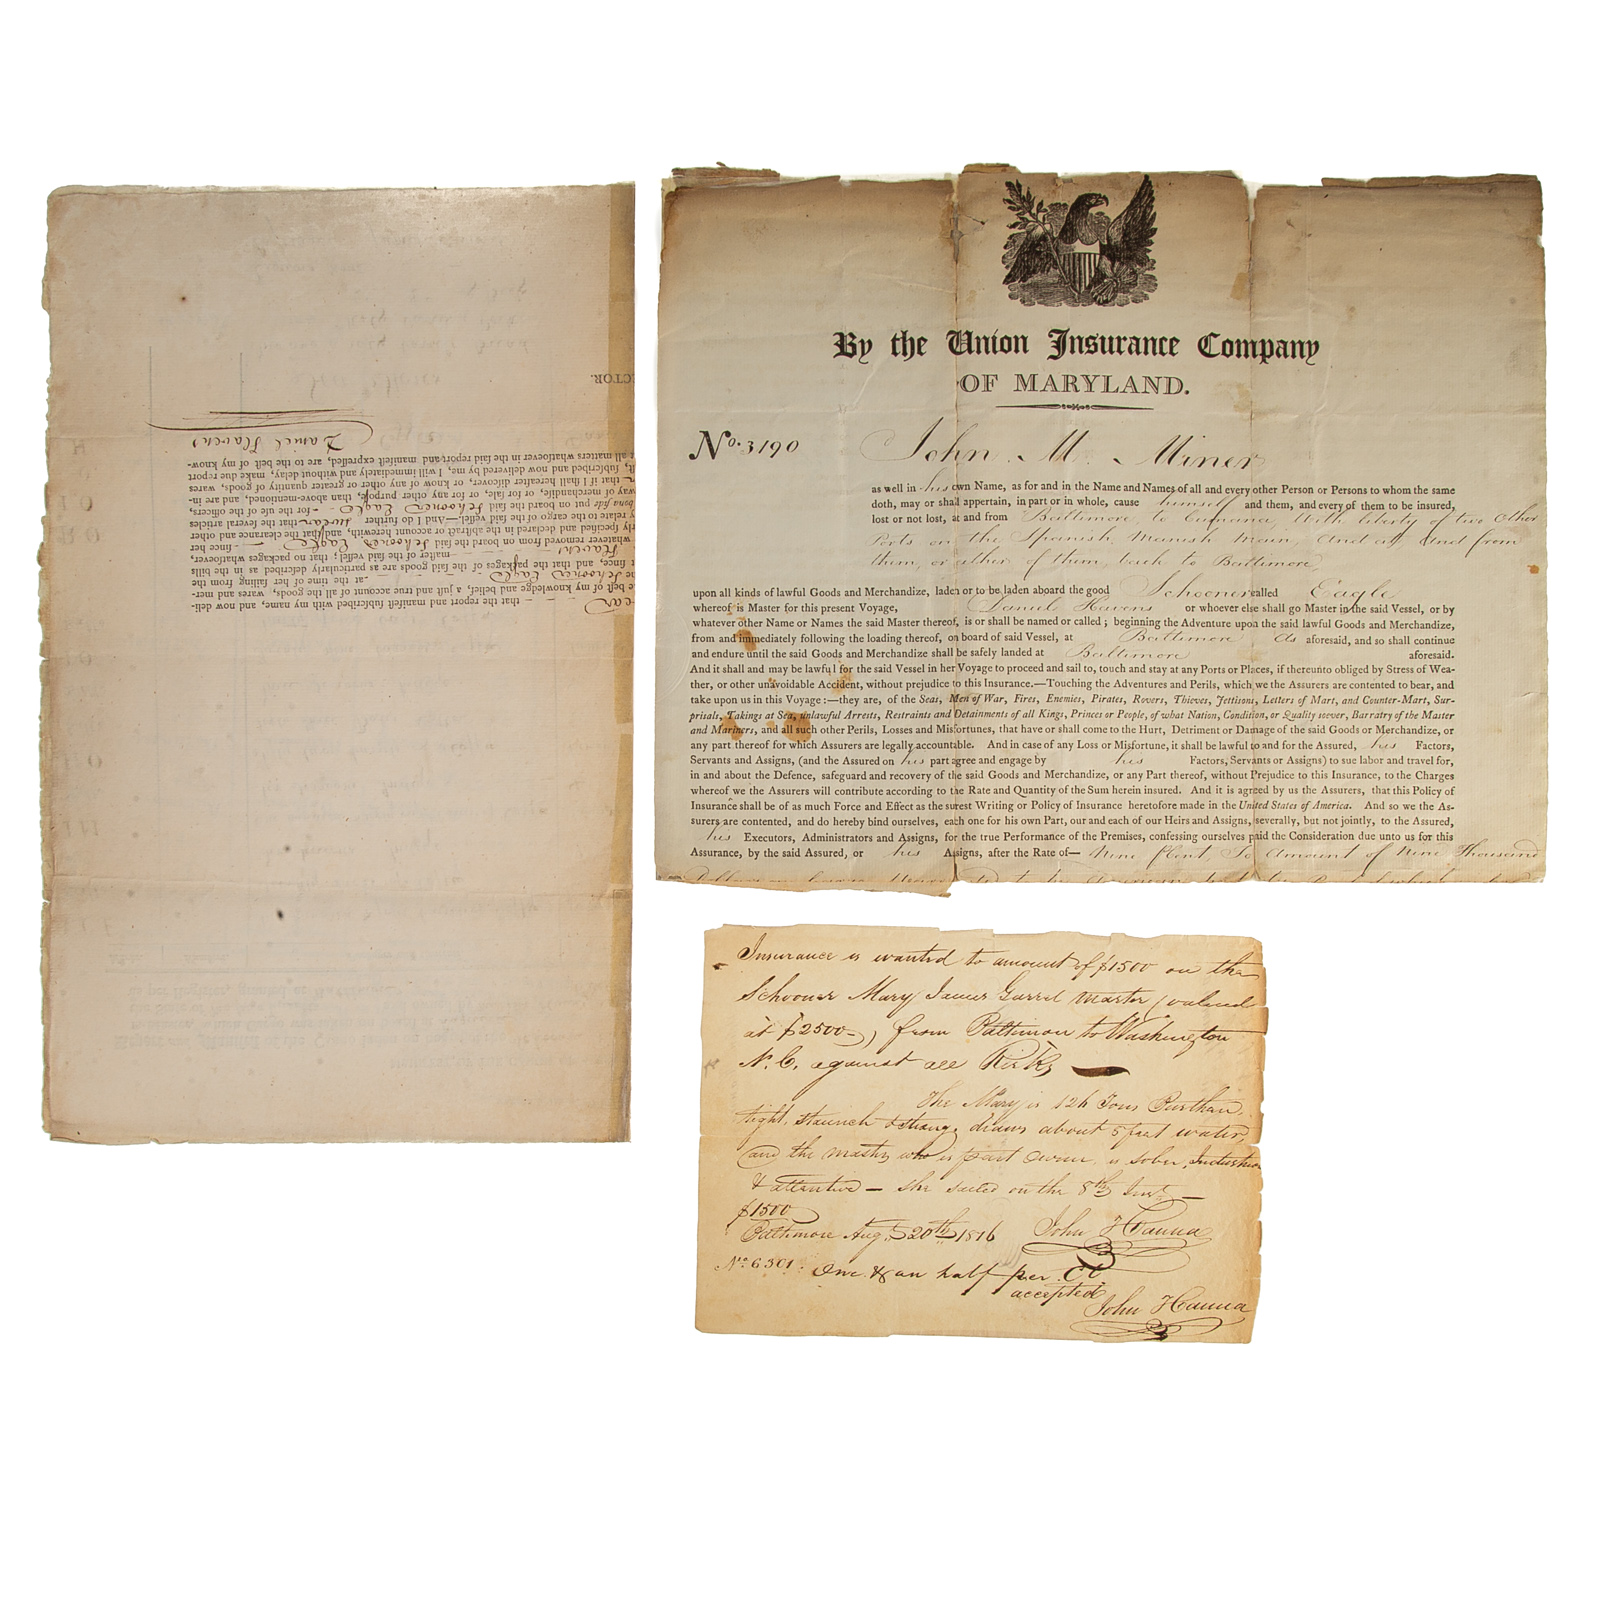 By the Union Insurance Company
OF MARYLAND.
No. 3190
John M. Miner
as well in his own Name, as for and in the Name and Names of all and every other Person or Persons to whom the same
doth, may or shall appertain, in part or in whole, cause himself and them, and every of them to be insured,
lost or not lost, at and from Baltimore to Cumana, With liberty of two other
Ports on the Spanish Main, And at and from
them, or either of them, back to Baltimore,
upon all kinds of lawful Goods and Merchandize, laden or to be laden aboard the good Schooner called Eagle
whereof is Master for this present Voyage, Daniel Havens or whoever else shall go Master in the said Vessel, or by
whatever other Name or Names the said Master thereof, is or shall be named or called; beginning the Adventure upon the said lawful Goods and Merchandize,
from and immediately following the loading thereof, on board of said Vessel, at Baltimore As aforesaid, and so shall continue
and endure until the said Goods and Merchandize shall be safely landed at Baltimore aforesaid.
And it shall and may be lawful for the said Vessel in her Voyage to proceed and sail to, touch and stay at any Ports or Places, if thereunto obliged by Stress of Wea-
ther, or other unavoidable Accident, without prejudice to this Insurance.—Touching the Adventures and Perils, which we the Assurers are contented to bear, and
take upon us in this Voyage:—they are, of the Seas, Men of War, Fires, Enemies, Pirates, Rovers, Thieves, Jettisons, Letters of Mart, and Counter-Mart, Sur-
prisals, Takings at Sea, unlawful Arrests, Restraints and Detainments of all Kings, Princes or People, of what Nation, Condition, or Quality soever, Barratry of the Master
and Mariners, and all such other Perils, Losses and Misfortunes, that have or shall come to the Hurt, Detriment or Damage of the said Goods or Merchandize, or
any part thereof for which Assurers are legally accountable. And in case of any Loss or Misfortune, it shall be lawful to and for the Assured, his Factors,
Servants and Assigns, (and the Assured on his part agree and engage by his Factors, Servants or Assigns) to sue labor and travel for,
in and about the Defence, safeguard and recovery of the said Goods and Merchandize, or any Part thereof, without Prejudice to this Insurance, to the Charges
whereof we the Assurers will contribute according to the Rate and Quantity of the Sum herein insured. And it is agreed by us the Assurers, that this Policy of
Insurance shall be of as much Force and Effect as the surest Writing or Policy of Insurance heretofore made in the United States of America. And so we the As-
surers are contented, and do hereby bind ourselves, each one for his own Part, our and each of our Heirs and Assigns, severally, but not jointly, to the Assured,
his Executors, Administrators and Assigns, for the true Performance of the Premises, confessing ourselves paid the Consideration due unto us for this
Assurance, by the said Assured, or his Assigns, after the Rate of— Nine p Cent, To Amount of Nine Thousand
Insurance is wanted to amount of $1500 on the
Schooner Mary James master (valued
at $2500), from Baltimore to Washington
N. C. against all Risks
The Mary is 126 Tons Burthan
tight, staunch & strong, draws about 5 feet water,
and the master who is part owner is sober,
& attentive — she sailed on the 8th Inst —
$1500
Baltimore Aug. 20th 1816 John Hanna
No. 6301. One & an half per Ct
accepted
John Hanna
CTOR.
that the report and manifest subscribed with my name, and now deli-
e best of my knowledge and belief, a just and true account of all the goods, wares and mer-
Schooner Eagle at the time of her sailing from the
since, and that the packages of the said goods are as particularly described as in the bills
Havens matter of the said vessel; that no packages whatsoever,
whatever removed from on board the said Schooner Eagle since her
rly specified and declared in the abstract or account herewith, and that the clearance and other
y relate to the cargo of the said vessel.—And I do further swear that the several articles
bona fide put on board the said Schooner Eagle for the use of the officers,
way of merchandize, or for sale, or for any other purpose, than above-mentioned, and are in-
n that if I shall hereafter discover, or know of any other or greater quantity of goods, wares
, subscribed and now delivered by me, I will immediately and without delay, make due report
t all matters whatsoever in the said report and manifest expressed, are to the best of my know-
Daniel Havens